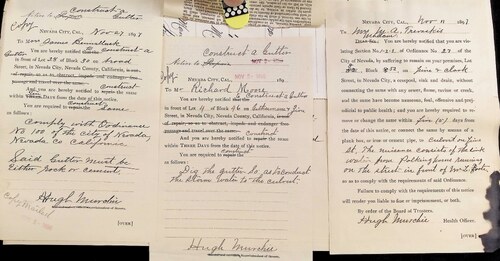 Construct a Gutter
Notice to Repair
Copy
NEVADA CITY, CAL., Nov 27 1897
To Mr. James Bennallack
You are hereby notified to Construct a
Gutter
in front of Lot 28 of Block 30 on Broad
Street, Nevada City, Nevada County, California,
out of repair, so as to obstruct, impede and endanger
And you are hereby notified to construct
within THREE DAYS from the date of this notice.
You are required to repair the same
Comply with Ordinance
No 100 of the City of Nevada,
Nevada Co California.
Said Gutter must be
Either rock or cement.
Hugh Murchie
[OVER]
construct a Gutter
Notice to Repair
Copy
NEVADA CITY, CAL., 189
To Mr. Richard Moore
You are hereby notified to Construct a Gutter
in front of Lot 9 of Block 96 on
Street, Nevada City, Nevada County, California,
out of repair, so as to obstruct, impede and endanger the
passage and travel over the same.
construct
And you are hereby notified to repair the same
within THREE DAYS from the date of this notice.
You are required to repair the
Dig the gutter so as to conduct
the storm water to the culvert.
Hugh Murchie
Superintendent of Streets.
[OVER]
NEVADA CITY, CAL., Nov 11 1897
To Mr. M. A.
DEAR SIR: You are hereby notified that you are violating
Section of Ordinance No. 23 of the
City of Nevada, by suffering to remain on your premises, Lot
Block on Pine & Clark
Street, in Nevada City, a cesspool, vault and drain, without
connecting the same with any sewer, flume, ravine or creek,
and the same have become unsound, foul, offensive and preju-
dicial to public health; and you are hereby required to re-
move or change the same within five (5) days from
the date of this notice, or connect the same by means of a
plank box, or iron or cement pipe, to culvert on Pine
St. The nuisance consists of the sink
water from running
on the street in front of
so as to comply with the requirements of said Ordinance.
Failure to comply with the requirements of this notice
will render you liable to fine or imprisonment, or both.
By order of the Board of Trustees.
Hugh Murchie Health Officer.
[OVER]